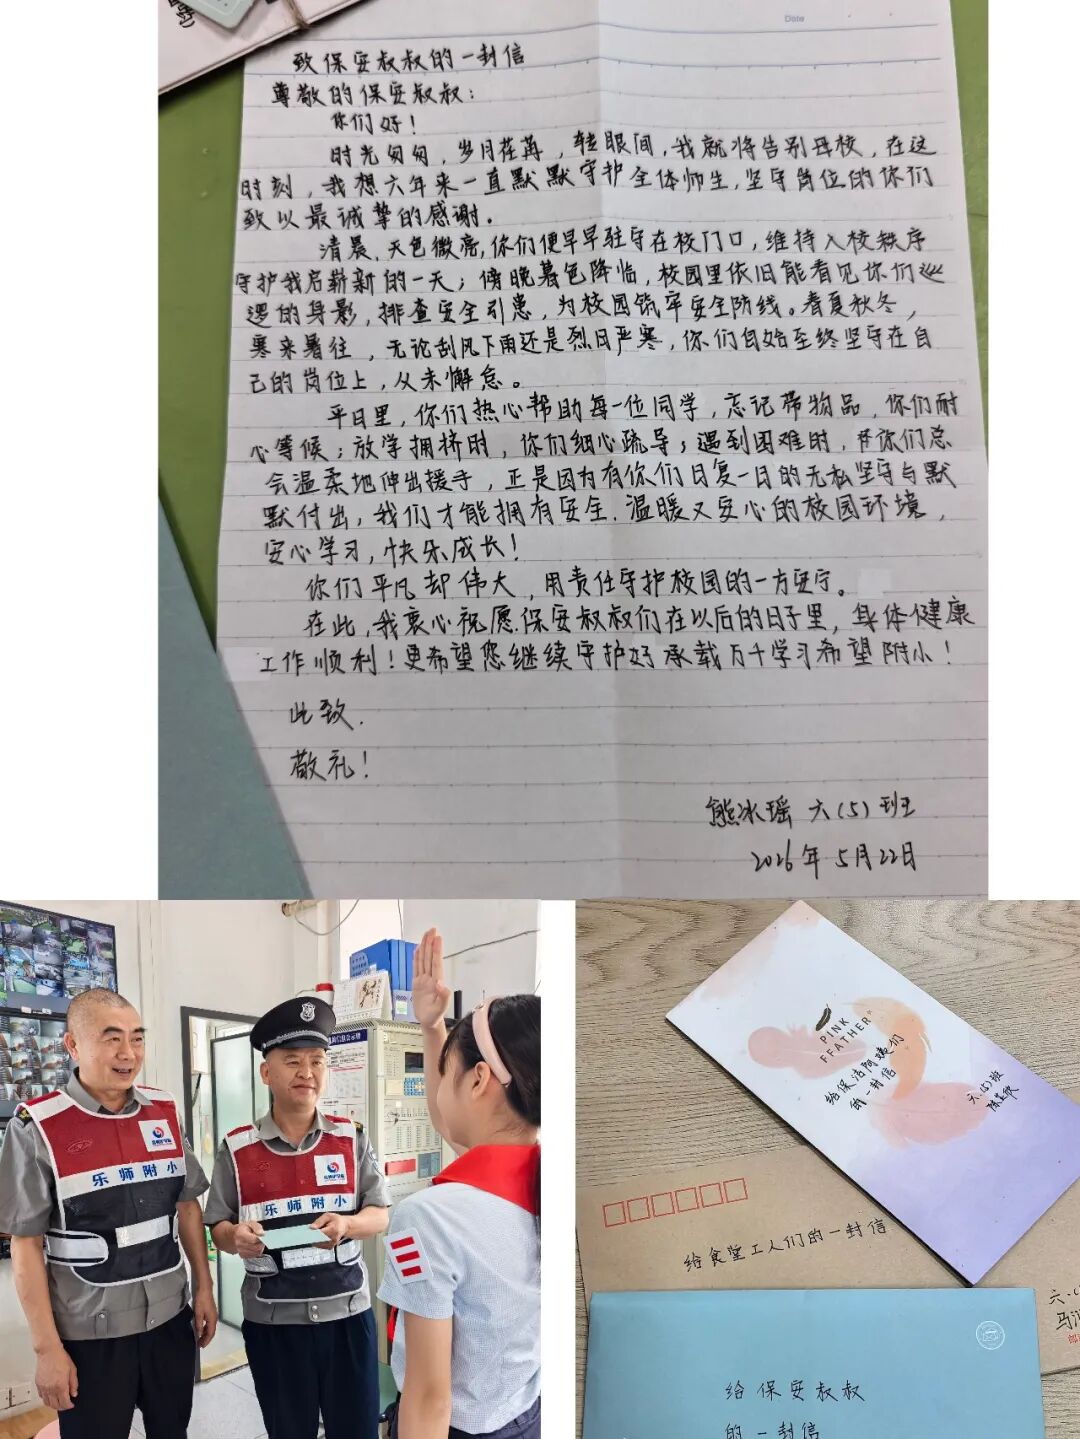 Date
致保安叔叔的一封信
尊敬的保安叔叔:
你们好!
时光匆匆,岁月荏苒,转眼间,我就将告别母校,在这
时刻,我想六年来一直默默守护全体师生,坚守岗位的你们
致以最诚挚的感谢。
清晨,天色微亮,你们便早早驻守在校门口,维持入校秩序
守护我启崭新的一天;傍晚暮色降临,校园里依旧能看见你们巡
逻的身影,排查安全引患,为校园筑牢安全防线。春夏秋冬,
寒来暑往,无论刮风下雨还是烈日严寒,你们自始至终坚守在自
己的岗位上,从未懈怠。
平日里,你们热心帮助每一位同学,忘记带物品,你们耐
心等候;放学拥挤时,你们细心疏导;遇到困难时,你们总
会温柔地伸出援手,正是因为有你们日复一日的无私坚守与默
默付出,我们才能拥有安全.温暖又安心的校园环境,
安心学习,快乐成长!
你们平凡却伟大,用责任守护校园的一方安宁。
在此,我衷心祝愿保安叔叔们在以后的日子里,身体健康
工作顺利!更希望您继续守护好承载万千学习希望附小!
此致.
敬礼!
熊冰瑶 六(5)班
2026年5月22日
乐师附小
乐师附小
PINK
FFATHER
给保洁阿姨们
的一封信
六.(5)班
给食堂工人们的一封信
给保安叔叔
的一封信